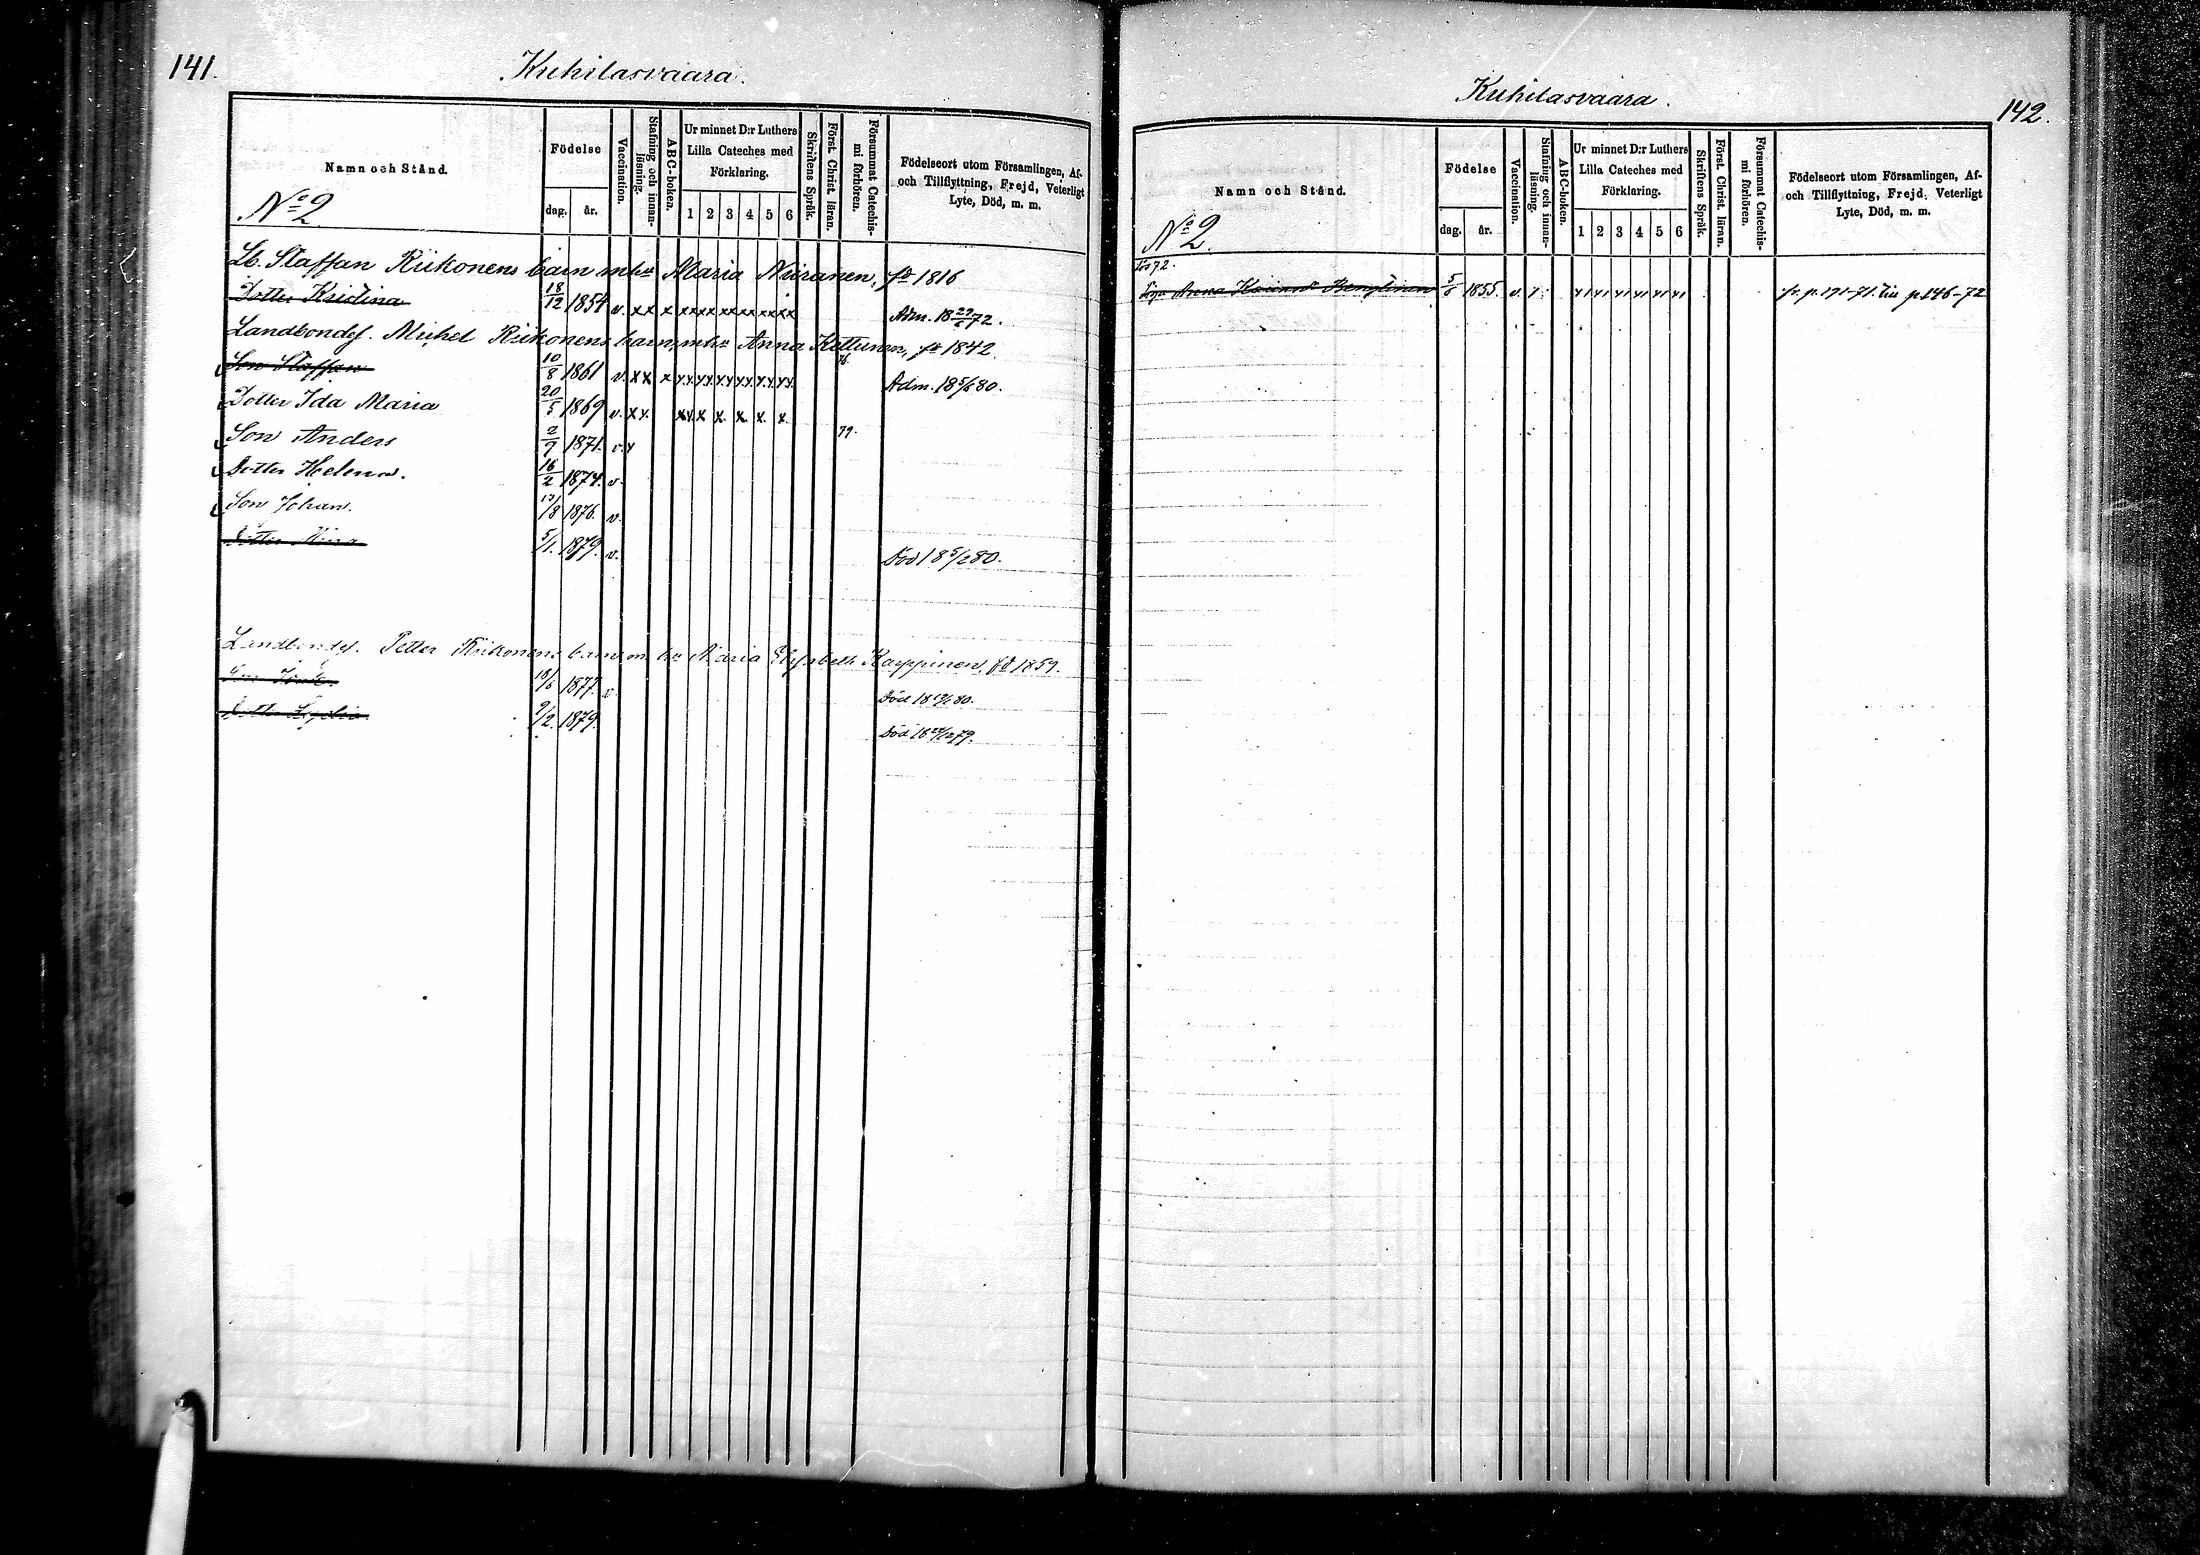 141.
Kuhilasvaara.
Namn och Stånd.
Födelse
dag. år.
Vaccination.
Stafning och innanläsning.
ABC-boken.
Ur minnet D:r Luthers Lilla Cateches med Förklaring.
1 2 3 4 5 6
Skriftens Språk.
Först. Christ. läran.
Försummat Catechismi förhören.
Födelseort utom Församlingen, Af- och Tillflyttning, Frejd, Veterligt Lyte, Död, m. m.
No 2
Lb. Staffan Riikonens barn m. hu Maria Niiranen, fd 1816
Dotter Kristina 18/12 1854 v. x x x xx xx xx xx xx xx Adm. 18 29/6 72.
Landbondes. Mickel Riikonens barn, m. hu Anna Kettunen, fd 1842
Son Staffan 10/8 1861 v. x x x xx xx xx xx xx xx 76. Adm. 18 5/6 80.
Dotter Ida Maria 20/5 1869 v. x x. xx x x. x. x. x.
Son Anders 2/9 1871. v. x 79.
Dotter Helena. 16/2 1874. v.
Son Johan. 13/8 1876. v.
Dotter Mina 5/1. 1879. v. Död 18 5/2 80.
Landbondes. Petter Riikonens barn m. hu Maria Elisabeth Karppinen, fd 1859.
Son 18/6 1877. v. Död 80.
Dotter Lydia. 9/2. 1879. Död 79.
Kuhilasvaara.
142.
Namn och Stånd.
Födelse
dag. år.
Vaccination.
Stafning och innanläsning.
ABC-boken.
Ur minnet D:r Luthers Lilla Cateches med Förklaring.
1 2 3 4 5 6
Skriftens Språk.
Först. Christ. läran.
Försummat Catechismi förhören.
Födelseort utom Församlingen, Af- och Tillflyttning, Frejd, Veterligt Lyte, Död, m. m.
No 2.
72.
Piga Anna 1855. v. fr. p. 171-71. till p. 146-72